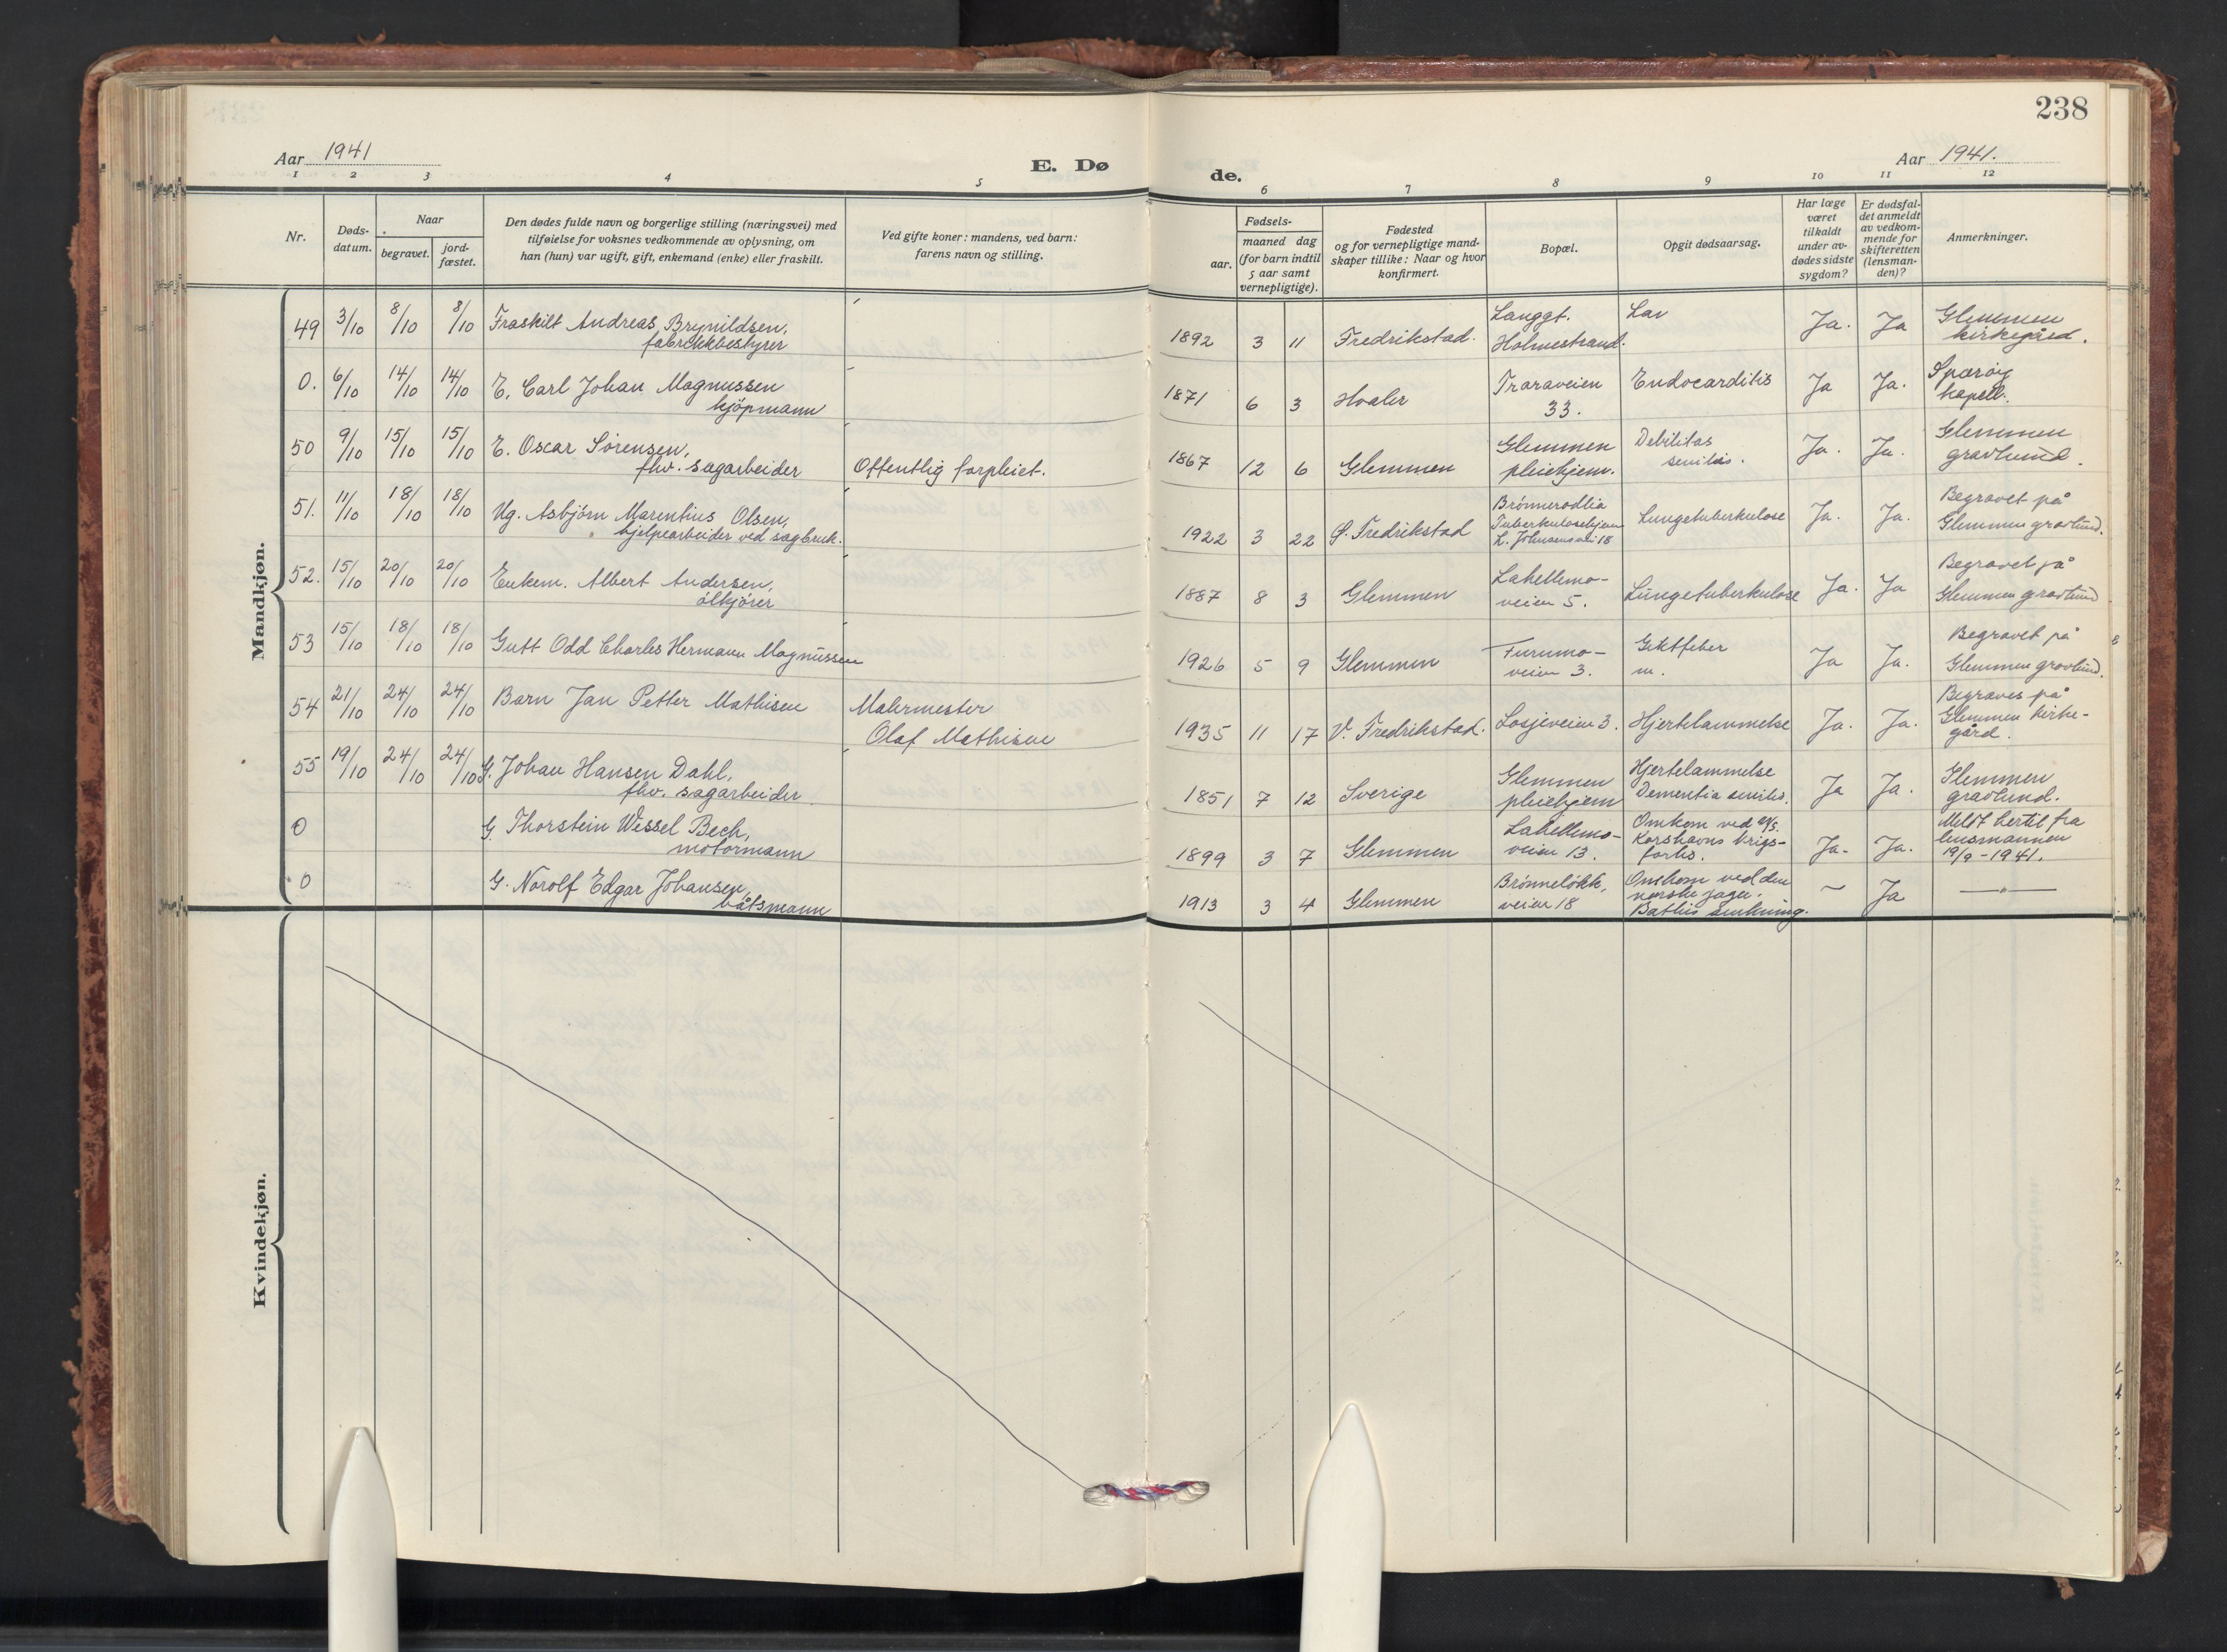 238
Aar 1941
E. Dø
de.
Aar 1941.
1 2 3 4 5 6 7 8 9 10 11 12
Nr.
Døds-
datum.
Naar
begravet.
jord-
fæstet.
Den dødes fulde navn og borgerlige stilling (næringsvei) med
tilføielse for voksnes vedkommende av oplysning, om
han (hun) var ugift, gift, enkemand (enke) eller fraskilt.
Ved gifte koner: mandens, ved barn:
farens navn og stilling.
Fødsels-
aar.
maaned dag
(for barn indtil
5 aar samt
vernepligtige).
Fødested
og for vernepligtige mand-
skaper tillike: Naar og hvor
konfirmert.
Bopæl.
Opgit dødsaarsag.
Har læge
været
tilkaldt
under av-
dødes sidste
sygdom?
Er dødsfal-
det anmeldt
av vedkom-
mende for
skifteretten
(lensman-
den)?
Anmerkninger.
Mandkjøn.
49 3/10 8/10 8/10 Fraskilt Andreas Brynildsen,
fabrikkbestyrer
1892 3 11 Fredrikstad.
Langgt.
Holmestrand.
Ja. Ja
Glemmen
kirkegård.
0. 6/10 14/10 14/10 E. Carl Johan Magnussen
kjøpmann
1871 6 3 Hvaler
Traraveien
33.
Endocarditis
Ja Ja.
Spærøy
kapell.
50 9/10 15/10 15/10 E. Oscar Sørensen,
fhv. sagarbeider
Offentlig forpleiet.
1867 12 6 Glemmen
Glemmen
pleiehjem.
Debilitas
senilis.
Ja. Ja.
Glemmen
gravlund.
51. 11/10 18/10 18/10 Ug. Asbjørn Marentius Olsen,
hjelpearbeider ved sagbruk.
1922 3 22 Ø. Fredrikstad
Brønnerødlia
Tuberkulosehjem
L. Johnsensvei 18
Lungetuberkulose
Ja. Ja.
Begravet på
Glemmen gravlund.
52. 15/10 20/10 20/10 Enkem. Albert Andersen,
ølkjører
1887 8 3 Glemmen
Lahellemo-
veien 5.
Lungetuberkulose
Ja. Ja
Begravet på
Glemmen gravlund
53 15/10 18/10 18/10 Gutt Odd Charles Hermann Magnussen
1926 5 9 Glemmen
Furumo-
veien 3.
Giktfeber
m.
Ja Ja.
Begravet på
Glemmen gravlund.
54 21/10 24/10 24/10 Barn Jan Petter Mathisen
Malermester
Olaf Mathisen
1935 11 17 V. Fredrikstad.
Losjeveien 3.
Hjertelammelse
Ja. Ja.
Begraves på
Glemmen kirke-
gård.
55 19/10 24/10 24/10 G. Johan Hansen Dahl,
fhv. sagarbeider.
1851 7 12 Sverige
Glemmen
pleiehjem
Hjertelammelse
Dementia senilis.
Ja Ja.
Glemmen
gravlund.
0 G. Thorstein Wessel Bech,
motormann
1899 3 7 Glemmen
Lahellemo-
veien 13.
Omkom ved M/S.
Korshavns krigs-
forlis.
Ja. Ja.
Meldt hertil fra
lensmannen
19/9 - 1941.
0 G. Norolf Edgar Johansen,
båtsmann
1913 3 4 Glemmen
Brønneløkk,
veien 18
Omkom ved den
norske jager.
Baths senkning.
~ Ja
—"—
Kvindekjøn.